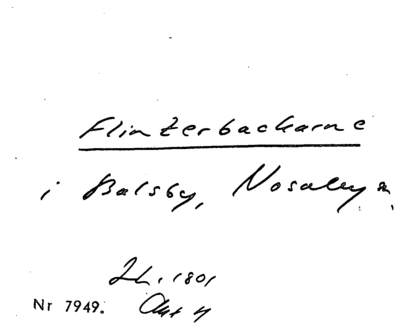 Flinterbackarne
i Balsby, Nosaby sn,
Lh. 1801
Nr 7949. Akt 4